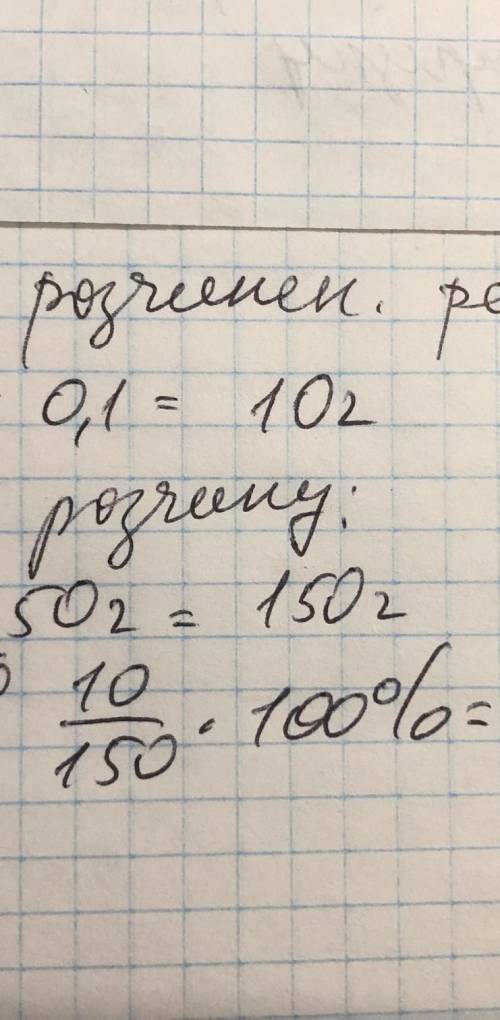 розчинен. ре
0,1 = 10г
розчину:
50г = 150г
10/150 · 100% =